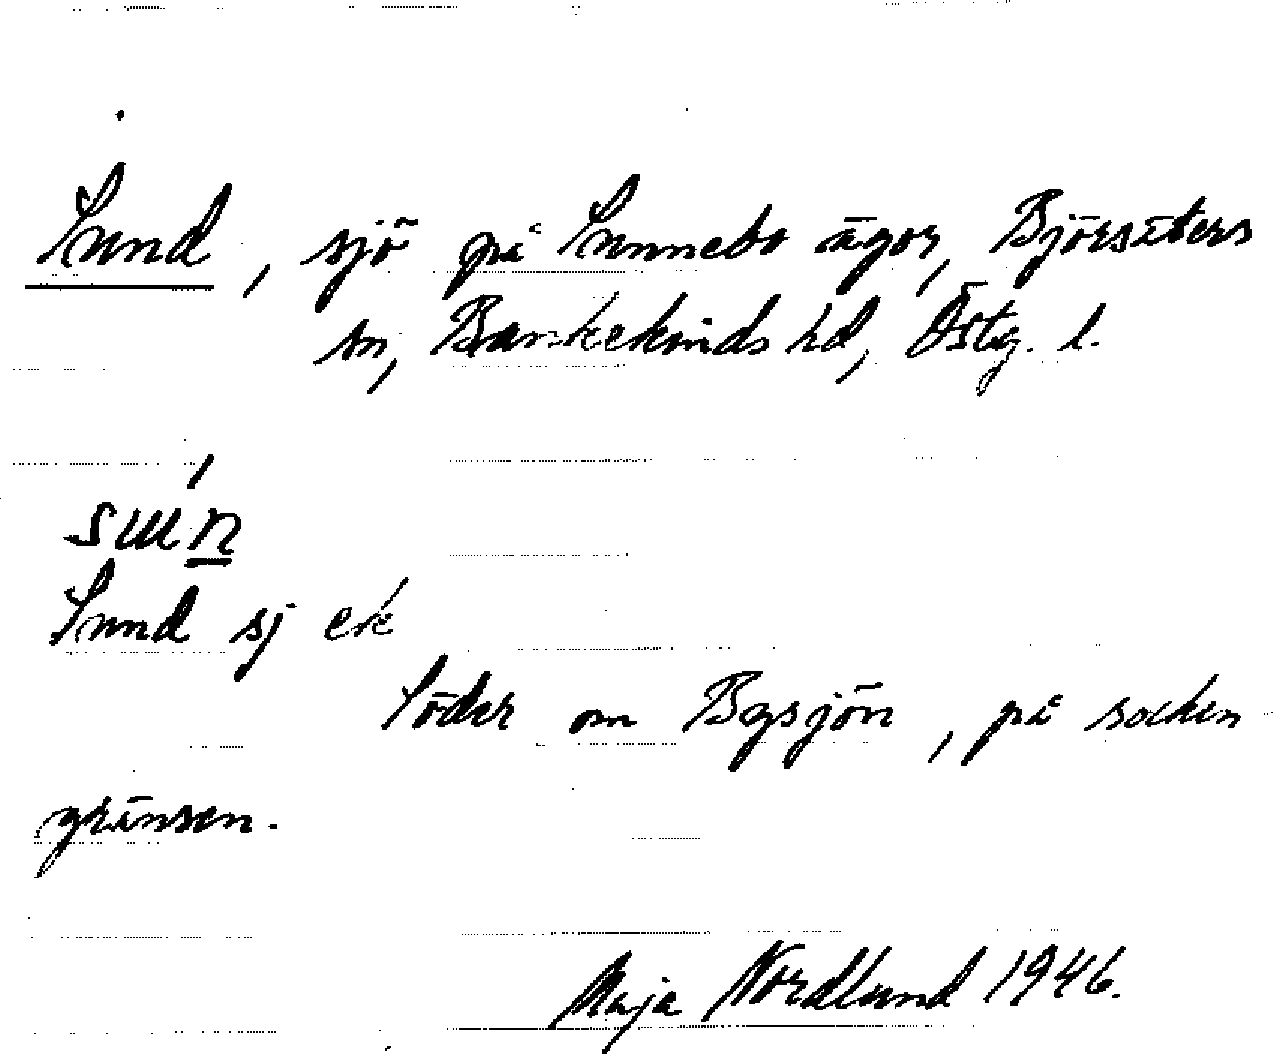 Sund, sjö på Sunnebo ägor, Björsäters
sn, Bankekinds hd, Östg. l.
Sund sj ek
Söder om Bysjön, på socken
gränsen.
Maja Nordlund 1946.